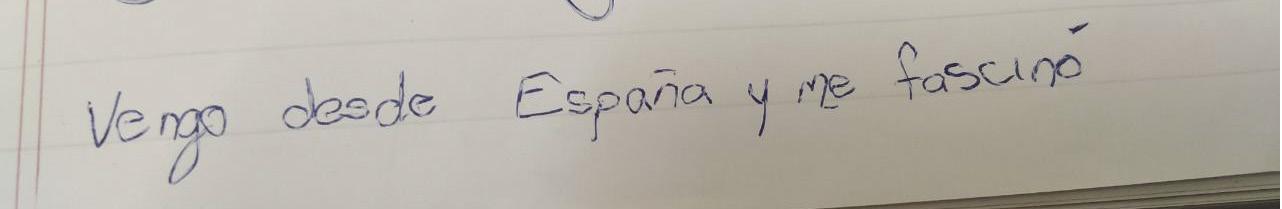 Vengo desde España y me fascinó